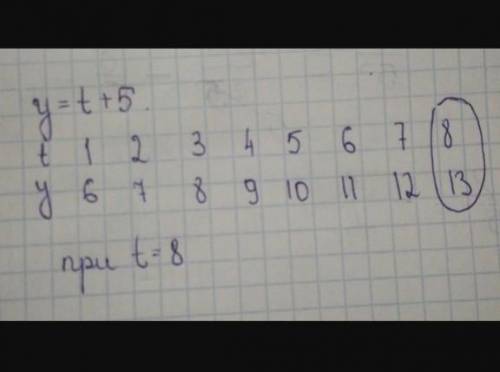 y = t + 5.
t 1 2 3 4 5 6 7 8
y 6 7 8 9 10 11 12 13
при t = 8